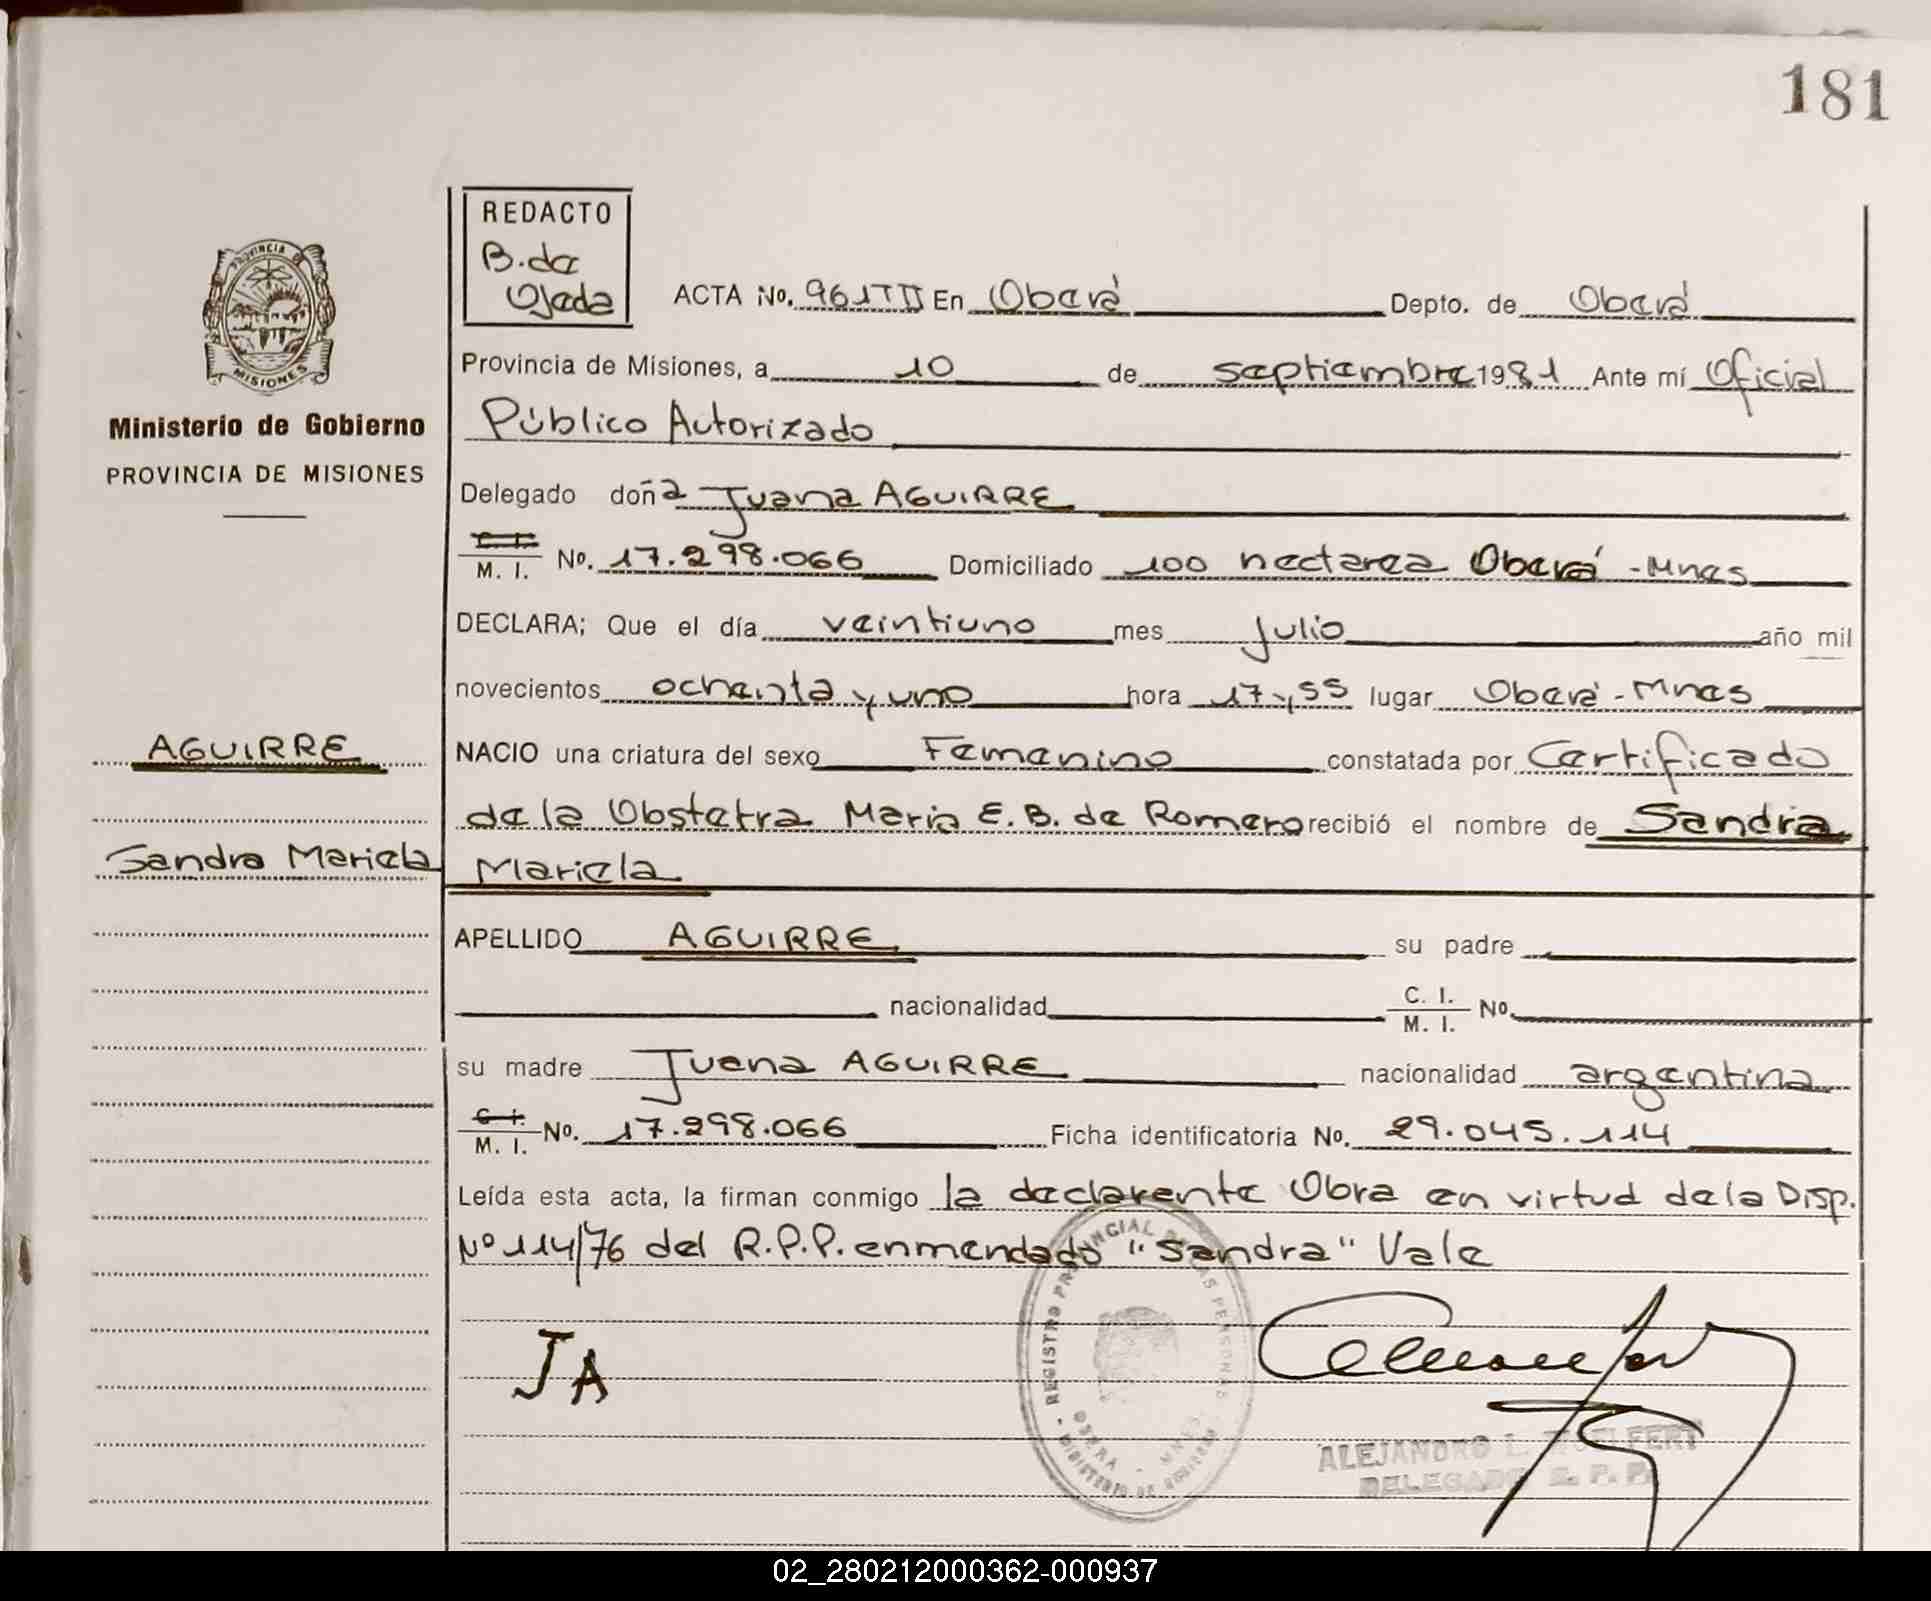 181
REDACTO
B. de
Ojeda
PROVINCIA DE
MISIONES
Ministerio de Gobierno
PROVINCIA DE MISIONES
ACTA No. 961TII En Oberá Depto. de Oberá
Provincia de Misiones, a 10 de septiembre 1981 Ante mí Oficial
Público Autorizado
Delegado doña Juana AGUIRRE
C. I.
M. I. No. 17.298.066 Domiciliado 100 hectarea Oberá - Mnes
DECLARA; Que el día veintiuno mes julio año mil
novecientos ochenta y uno hora 17 y 55 lugar Oberá - Mnes
AGUIRRE
NACIO una criatura del sexo Femenino constatada por Certificado
de la Obstetra Maria E. B. de Romero recibió el nombre de Sandra
Sandra Mariela
Mariela
APELLIDO AGUIRRE su padre
nacionalidad C. I. M. I. No.
su madre Juana AGUIRRE nacionalidad argentina
C. I.
M. I. No. 17.298.066 Ficha identificatoria No. 29.045.114
Leída esta acta, la firman conmigo la declarente Obra en virtud de la Disp.
Nº 114/76 del R.P.P. enmendado "Sandra" Vale
JA
REGISTRO PROVINCIAL DE LAS PERSONAS
OBERA - MNES.
MINISTERIO DE GOBIERNO
ALEJANDRO L.
DELEGADO R. P. P.
02_280212000362-000937